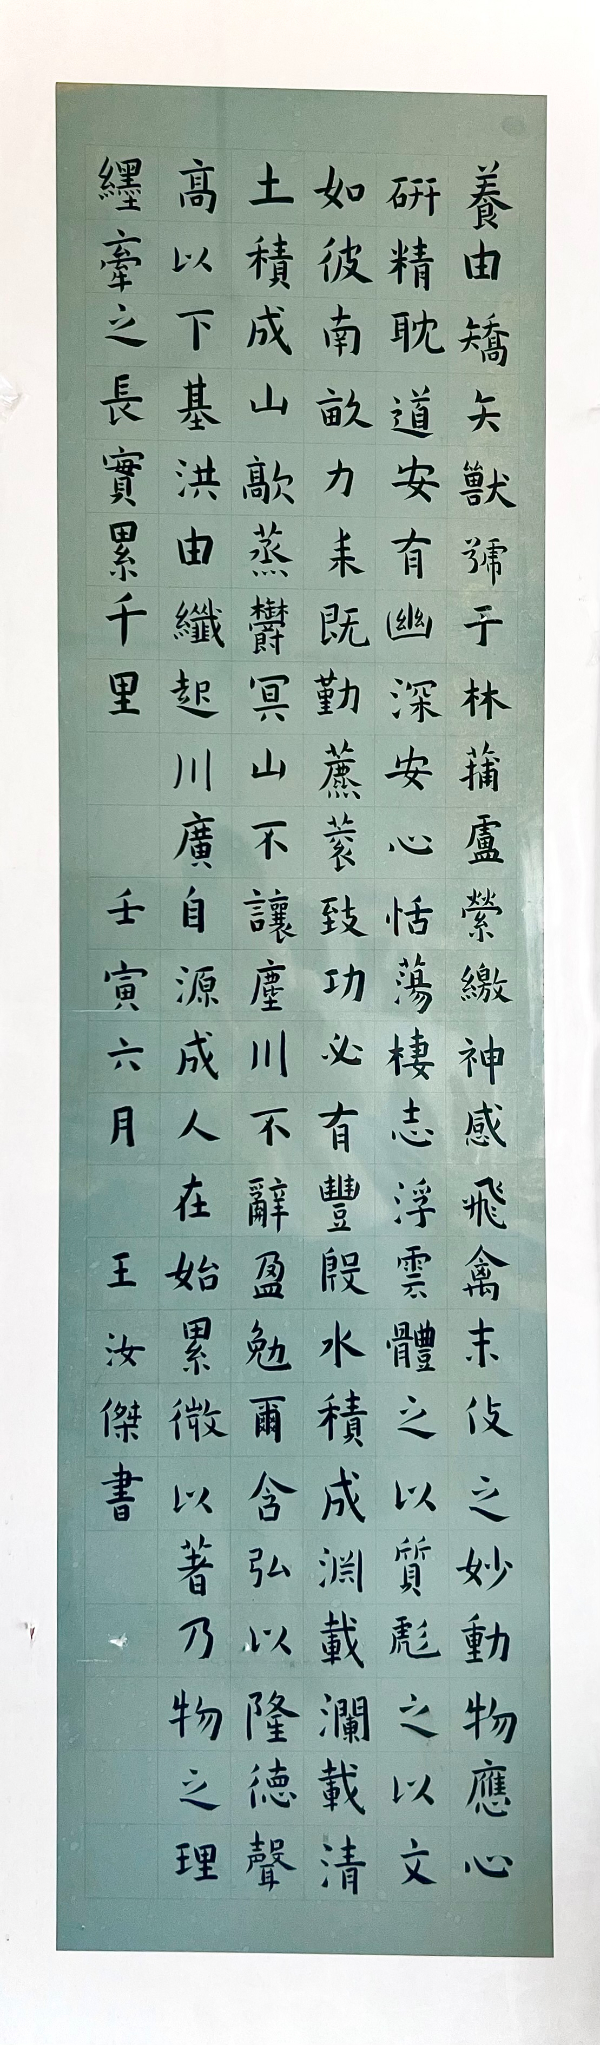 養由矯矢獸號于林蒱盧縈繳神感飛禽末伎之妙動物應心
硏精耽道安有幽深安心恬蕩棲志浮雲體之以質彪之以文
如彼南畝力耒既勤藨蔉致功必有豐殷水積成淵載瀾載清
土積成山歊蒸鬱冥山不讓塵川不辭盈勉爾含弘以隆德聲
高以下基洪由纖起川廣自源成人在始累微以著乃物之理
纆牽之長實累千里 壬寅六月 王汝傑書